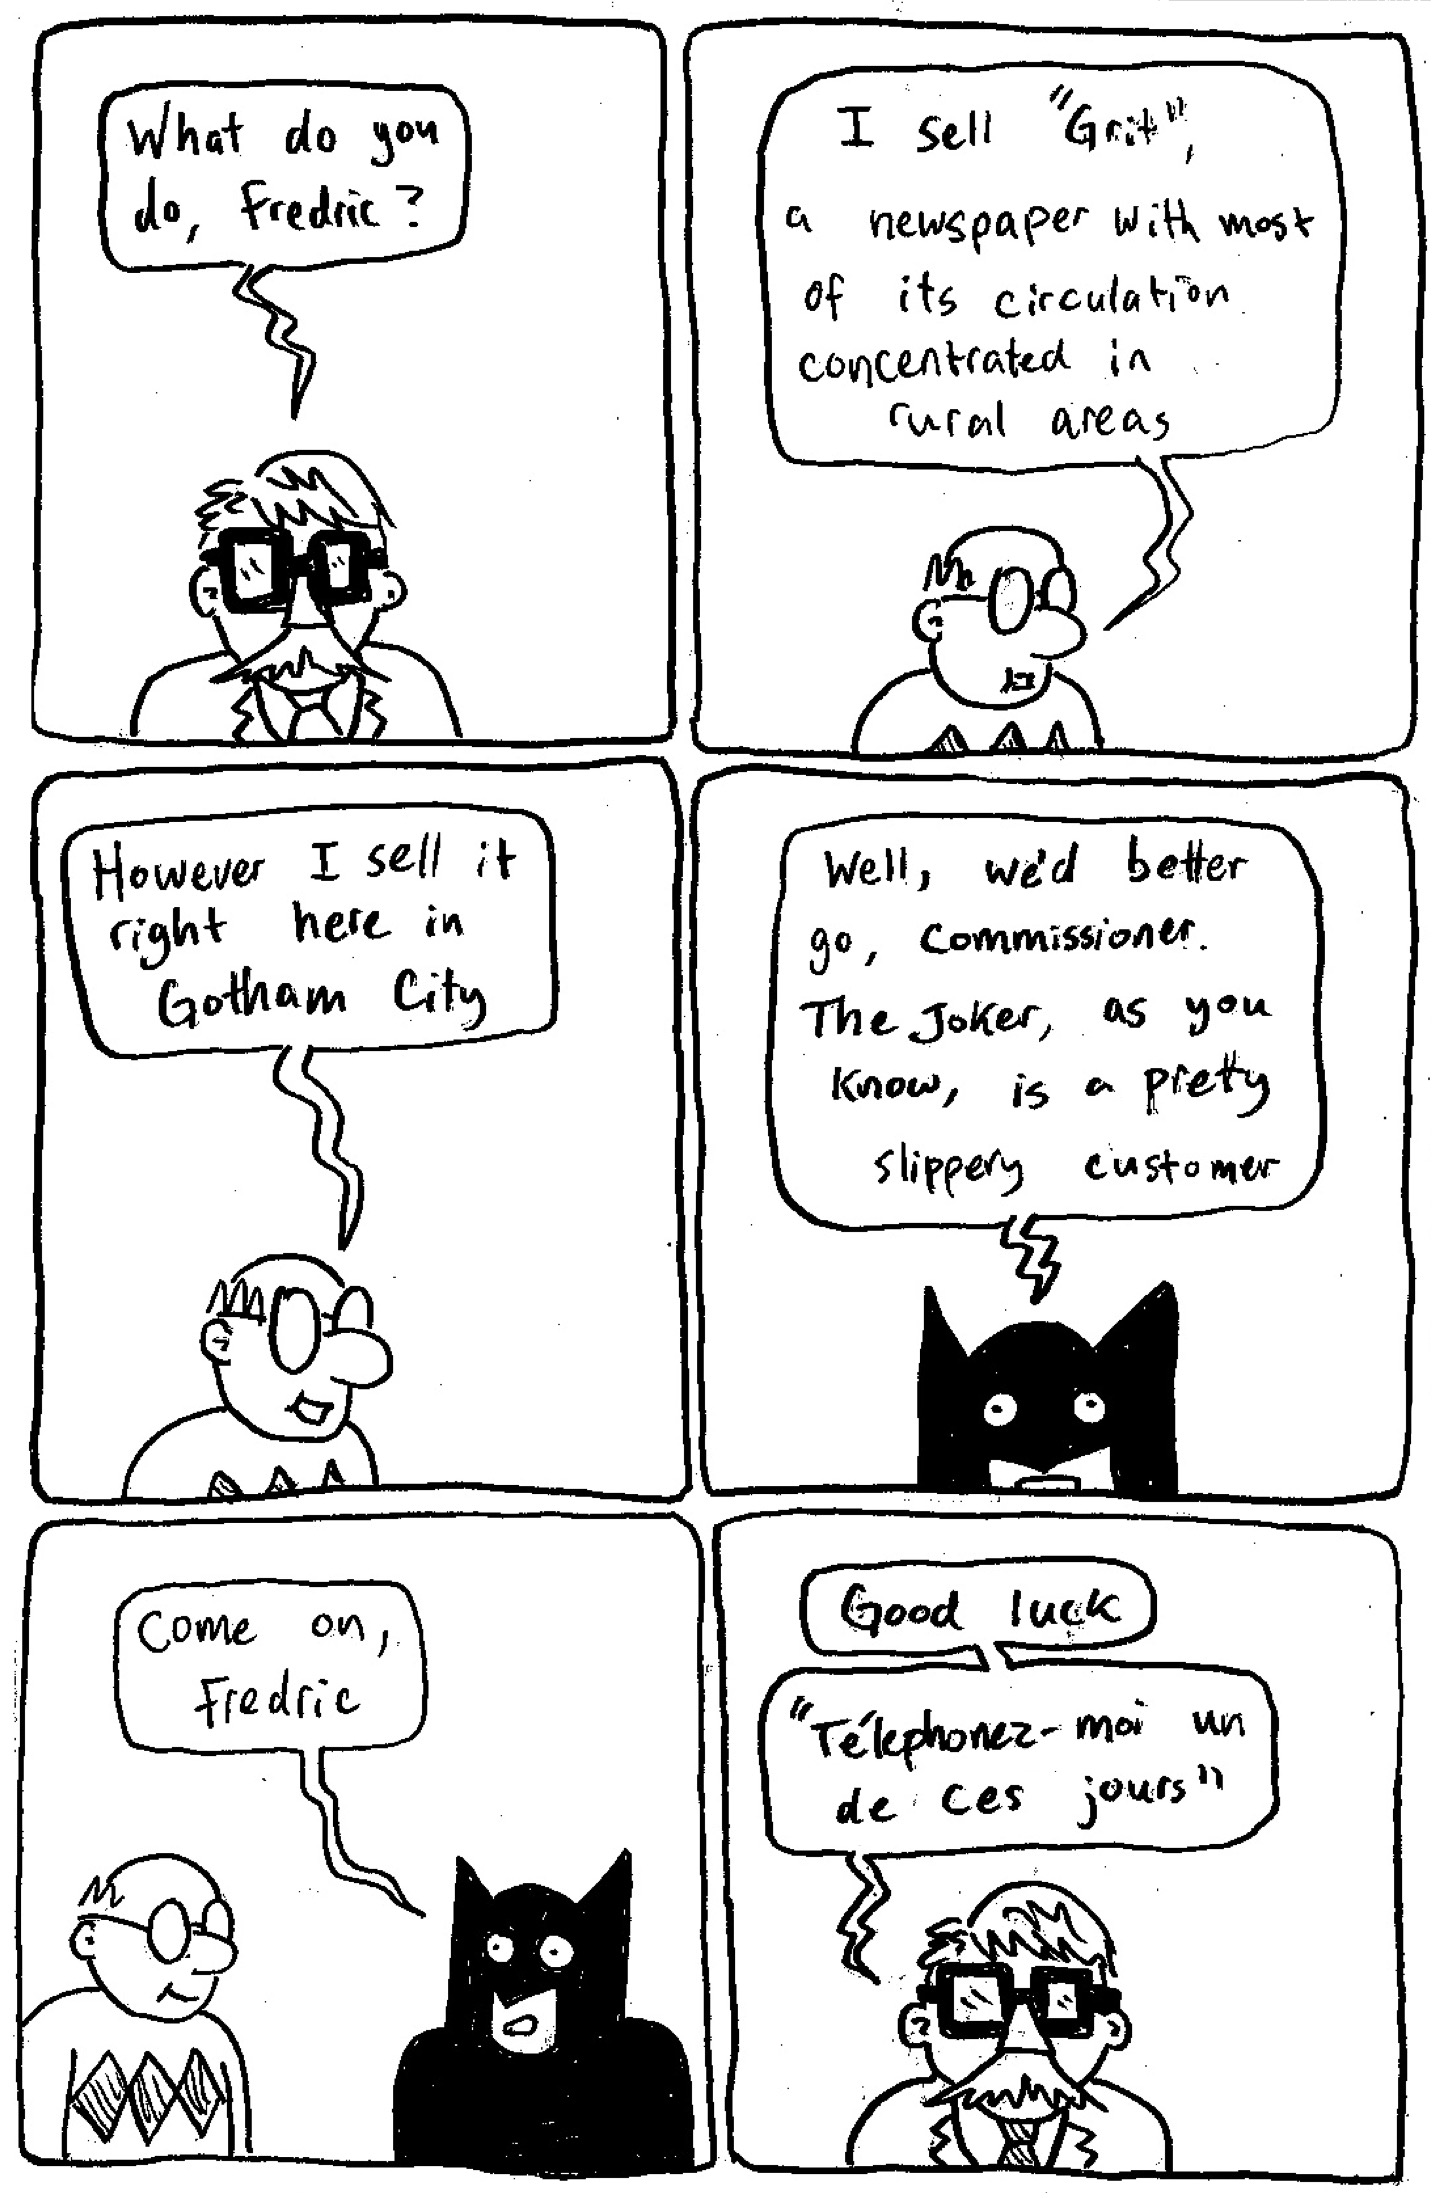 What do you
do, Fredric?
I sell "Grit",
a newspaper with most
of its circulation
concentrated in
rural areas
However I sell it
right here in
Gotham City
Well, we'd better
go, Commissioner.
The Joker, as you
know, is a pretty
slippery customer
Come on,
Fredric
Good luck
"Télephonez-moi un
de ces jours"